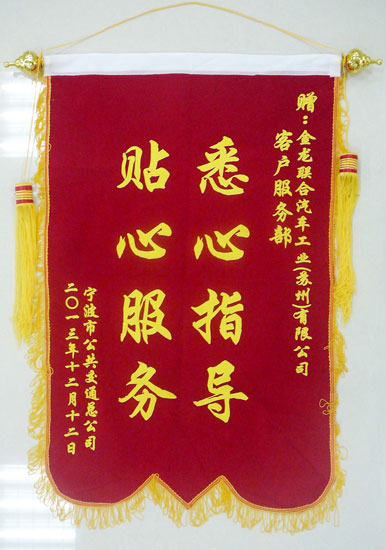 赠：金龙联合汽车工业(苏州)有限公司
客户服务部
悉心指导
贴心服务
宁波市公共交通总公司
二〇一三年十二月十二日